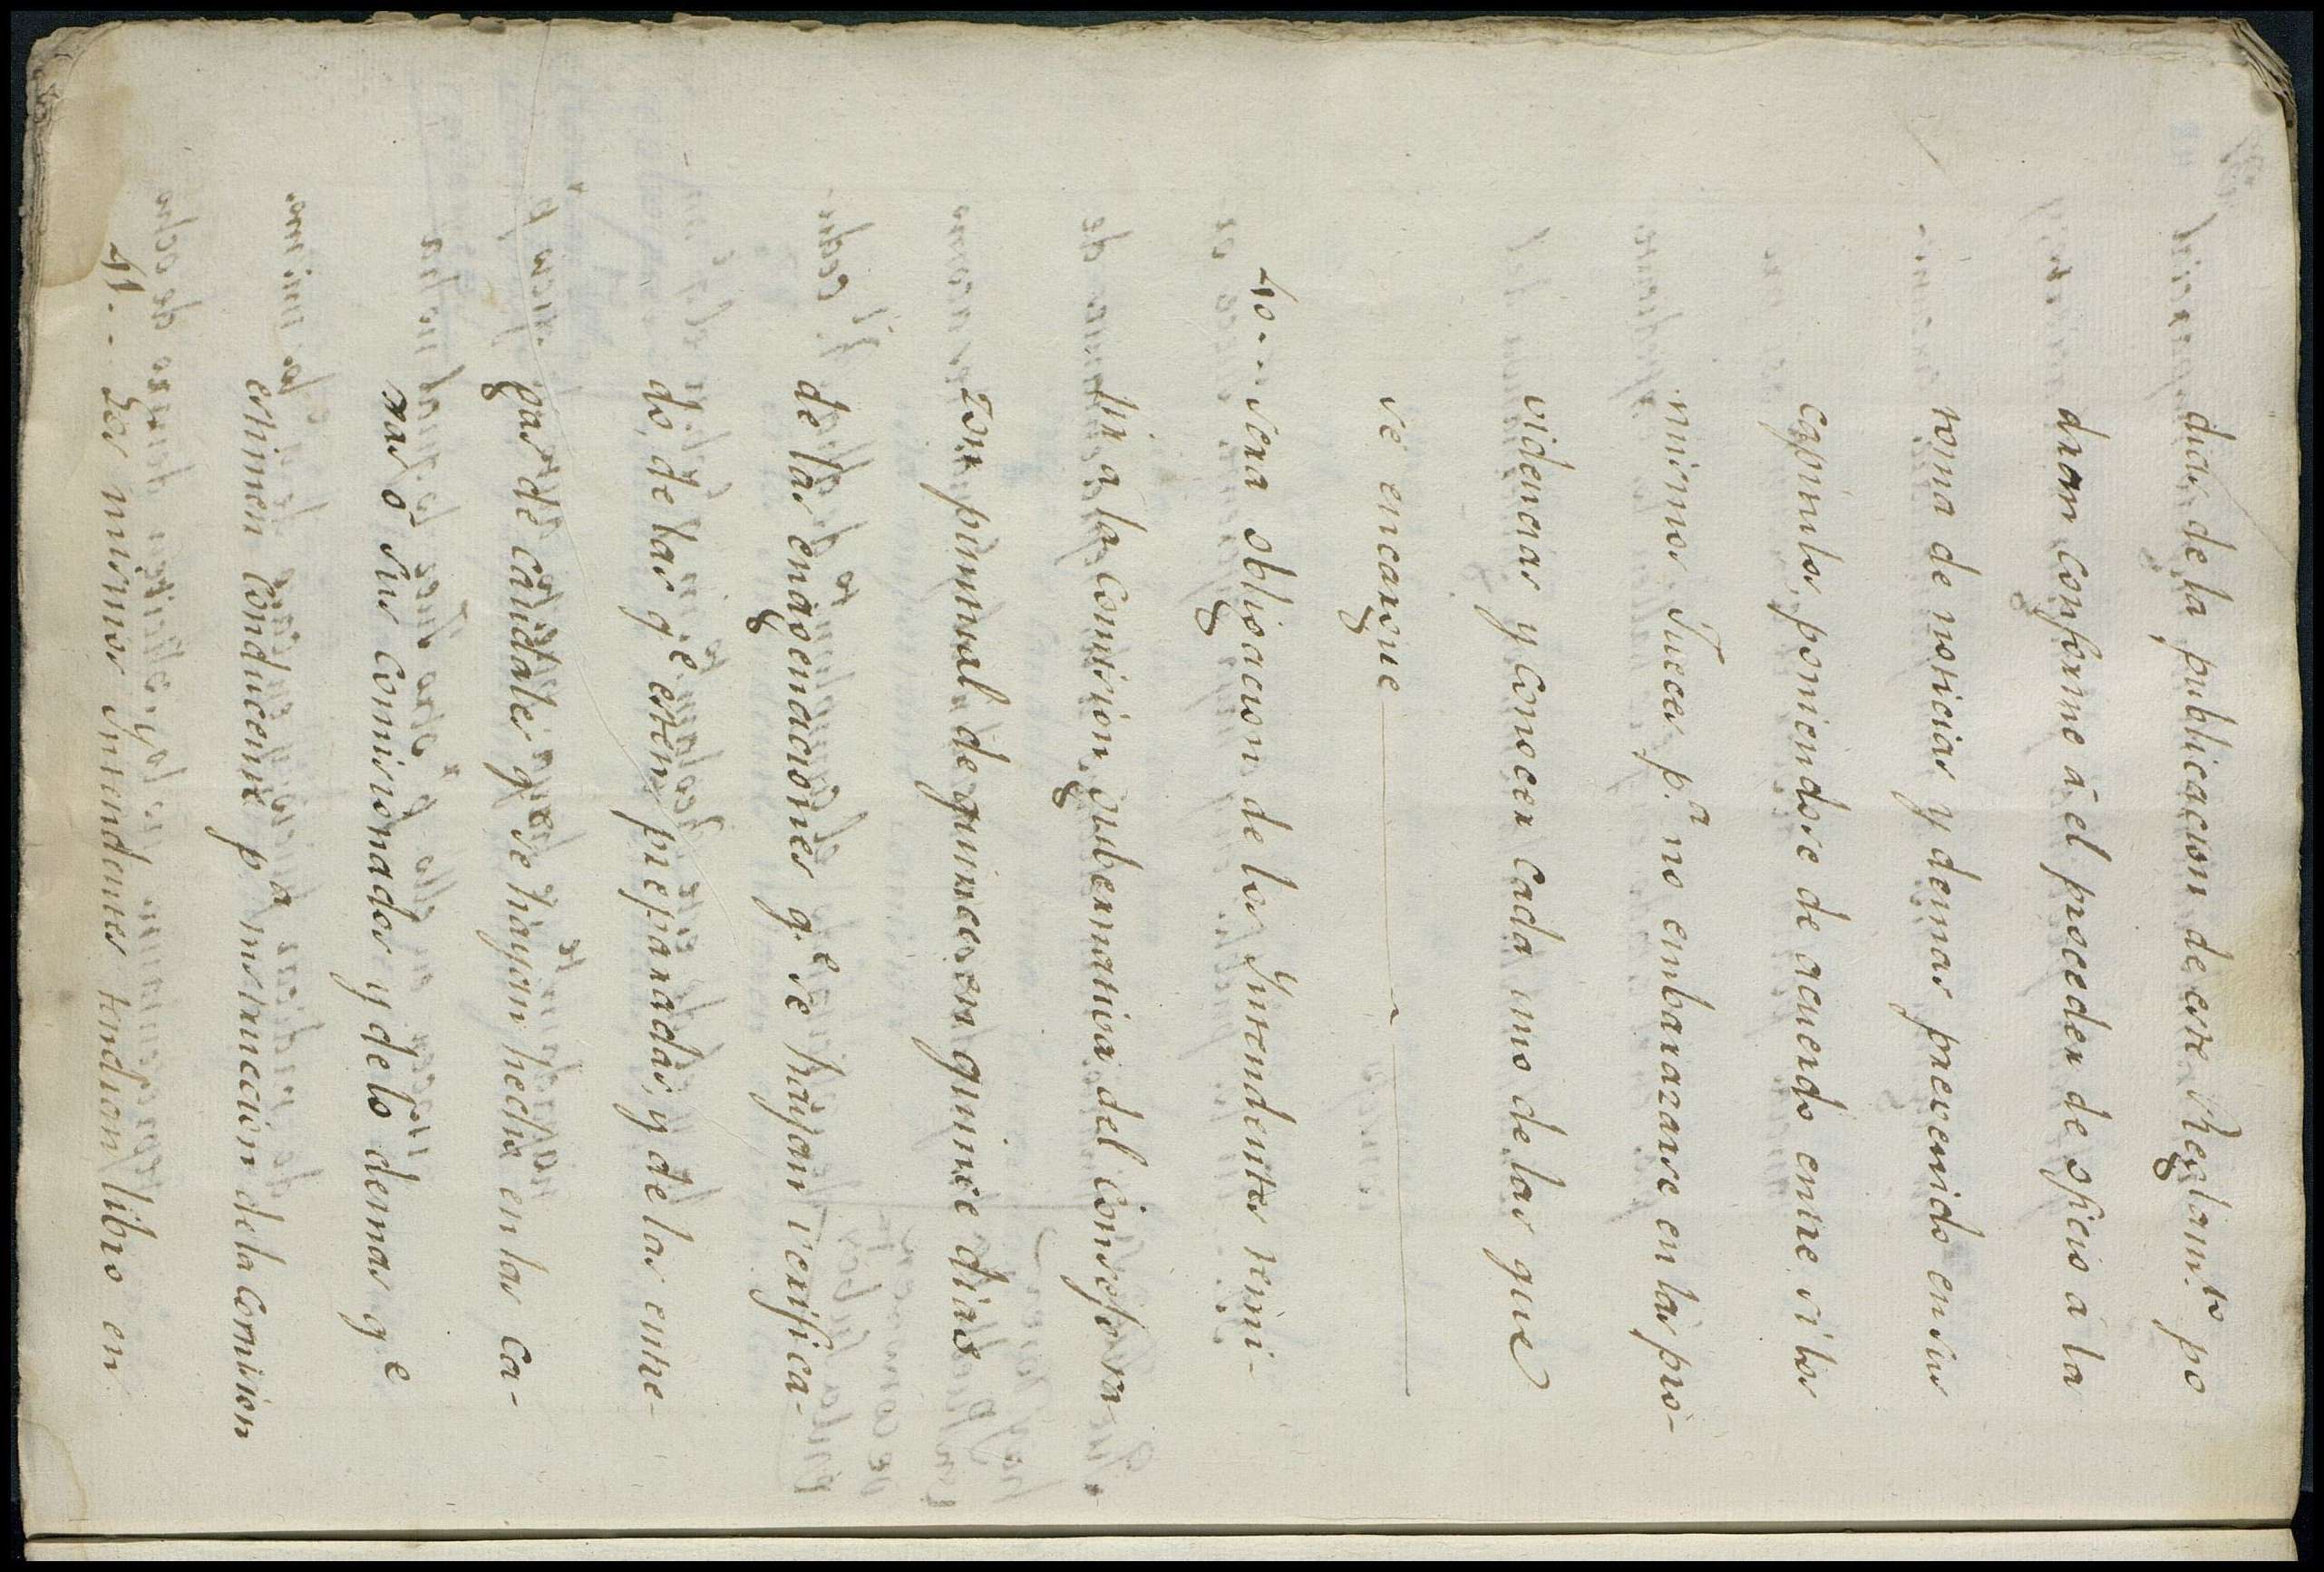 dida de la publicacion de este Reglam.to po
dran conforme á el proceder de oficio á la
toma de noticias y demas prevenido en sus
capitulos, poniendose de acuerdo entre si los
mismos Jueces p.a no embarazarse en las pro-
videncias y conocer cada uno de las que
se encargue
40.. Sera obligacion de los Yntendentes remi-
tir a la Comision gubernativa del Consejo ra-
zon puntual de quince en quince dias
de las enagenaciones q.e se hayan verifica-
do, de las q.e esten preparadas, y de las entre-
gas de caudales q.e se hayan hecho en las ca-
xas ó sus comisionados y de lo demas q.e
estimen conducente p.a instruccion de la comision
41.. Los mismos Yntendentes tendran libro en